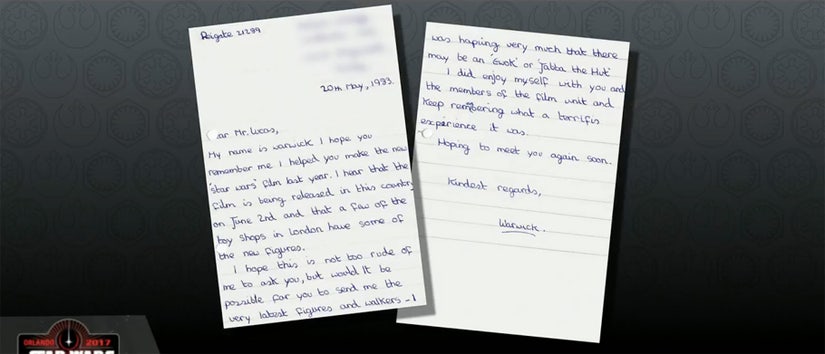 Reigate 21299
20th May, 1983.
ar Mr. Lucas,
My name is warwick I hope you
remember me I helped you make the new
'star wars' film last year. I hear that the
film is being released in this country
on June 2nd and that a few of the
toy shops in London have some of
the new figures.
I hope this is not too rude of
me to ask you, but would it be
possible for you to send me the
very latest figures and walkers - I
was hopiing very much that there
may be an 'Ewok' or 'Jabba the Hut'
I did enjoy myself with you and
the members of the film unit and
keep rembering what a terrific
experience it was.
Hoping to meet you again soon.
Kindest regards,
Warwick.
ORLANDO 2017
STAR WARS